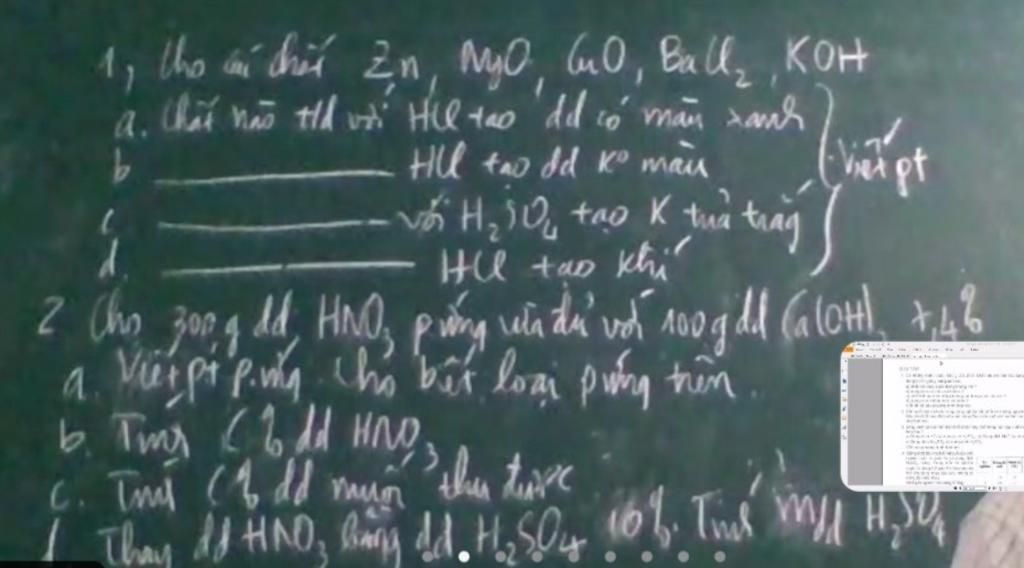 1, Cho các chất Zn, MgO, CuO, BaCl₂, KOH
a. Chất nào t/d với HCl tạo dd có màu xanh
b ________ HCl tạo dd K° màu
c. ________ với H₂SO₄ tạo K tủa trắng
d. ________ HCl tạo khí
Viết pt
2 Cho 300g dd HNO₃ p.ứng vừa đủ với 100g dd Ca(OH)₂ 7,4%
a. Viết pt p.ứng. Cho biết loại p.ứng trên.
b. Tính C% dd HNO₃
c. Tính C% dd muối thu được
d Thay dd HNO₃ bằng dd H₂SO₄ 10%. Tính mdd H₂SO₄